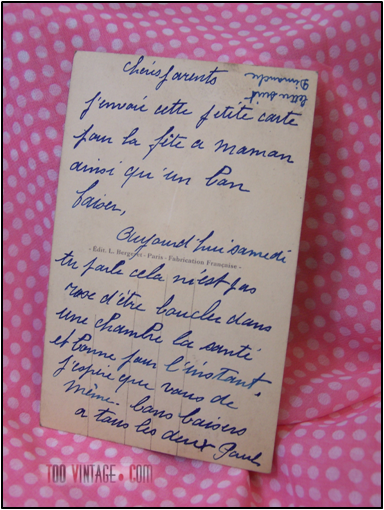 Chéris parents
lettre suit
Dimanche
j'envoie cette petite carte
pour la fête a maman
ainsi qu'un bon
baiser,
Aujourd'hui samedi
- Édit. L. Bergeret - Paris - Fabrication Française -
tu parle cela n'est pas
rose d'être boucler dans
une chambre la santé
et bonne pour l'instant,
j'espère que vous de
même. bons baisers
a tous les deux Paul
TOO VINTAGE.COM